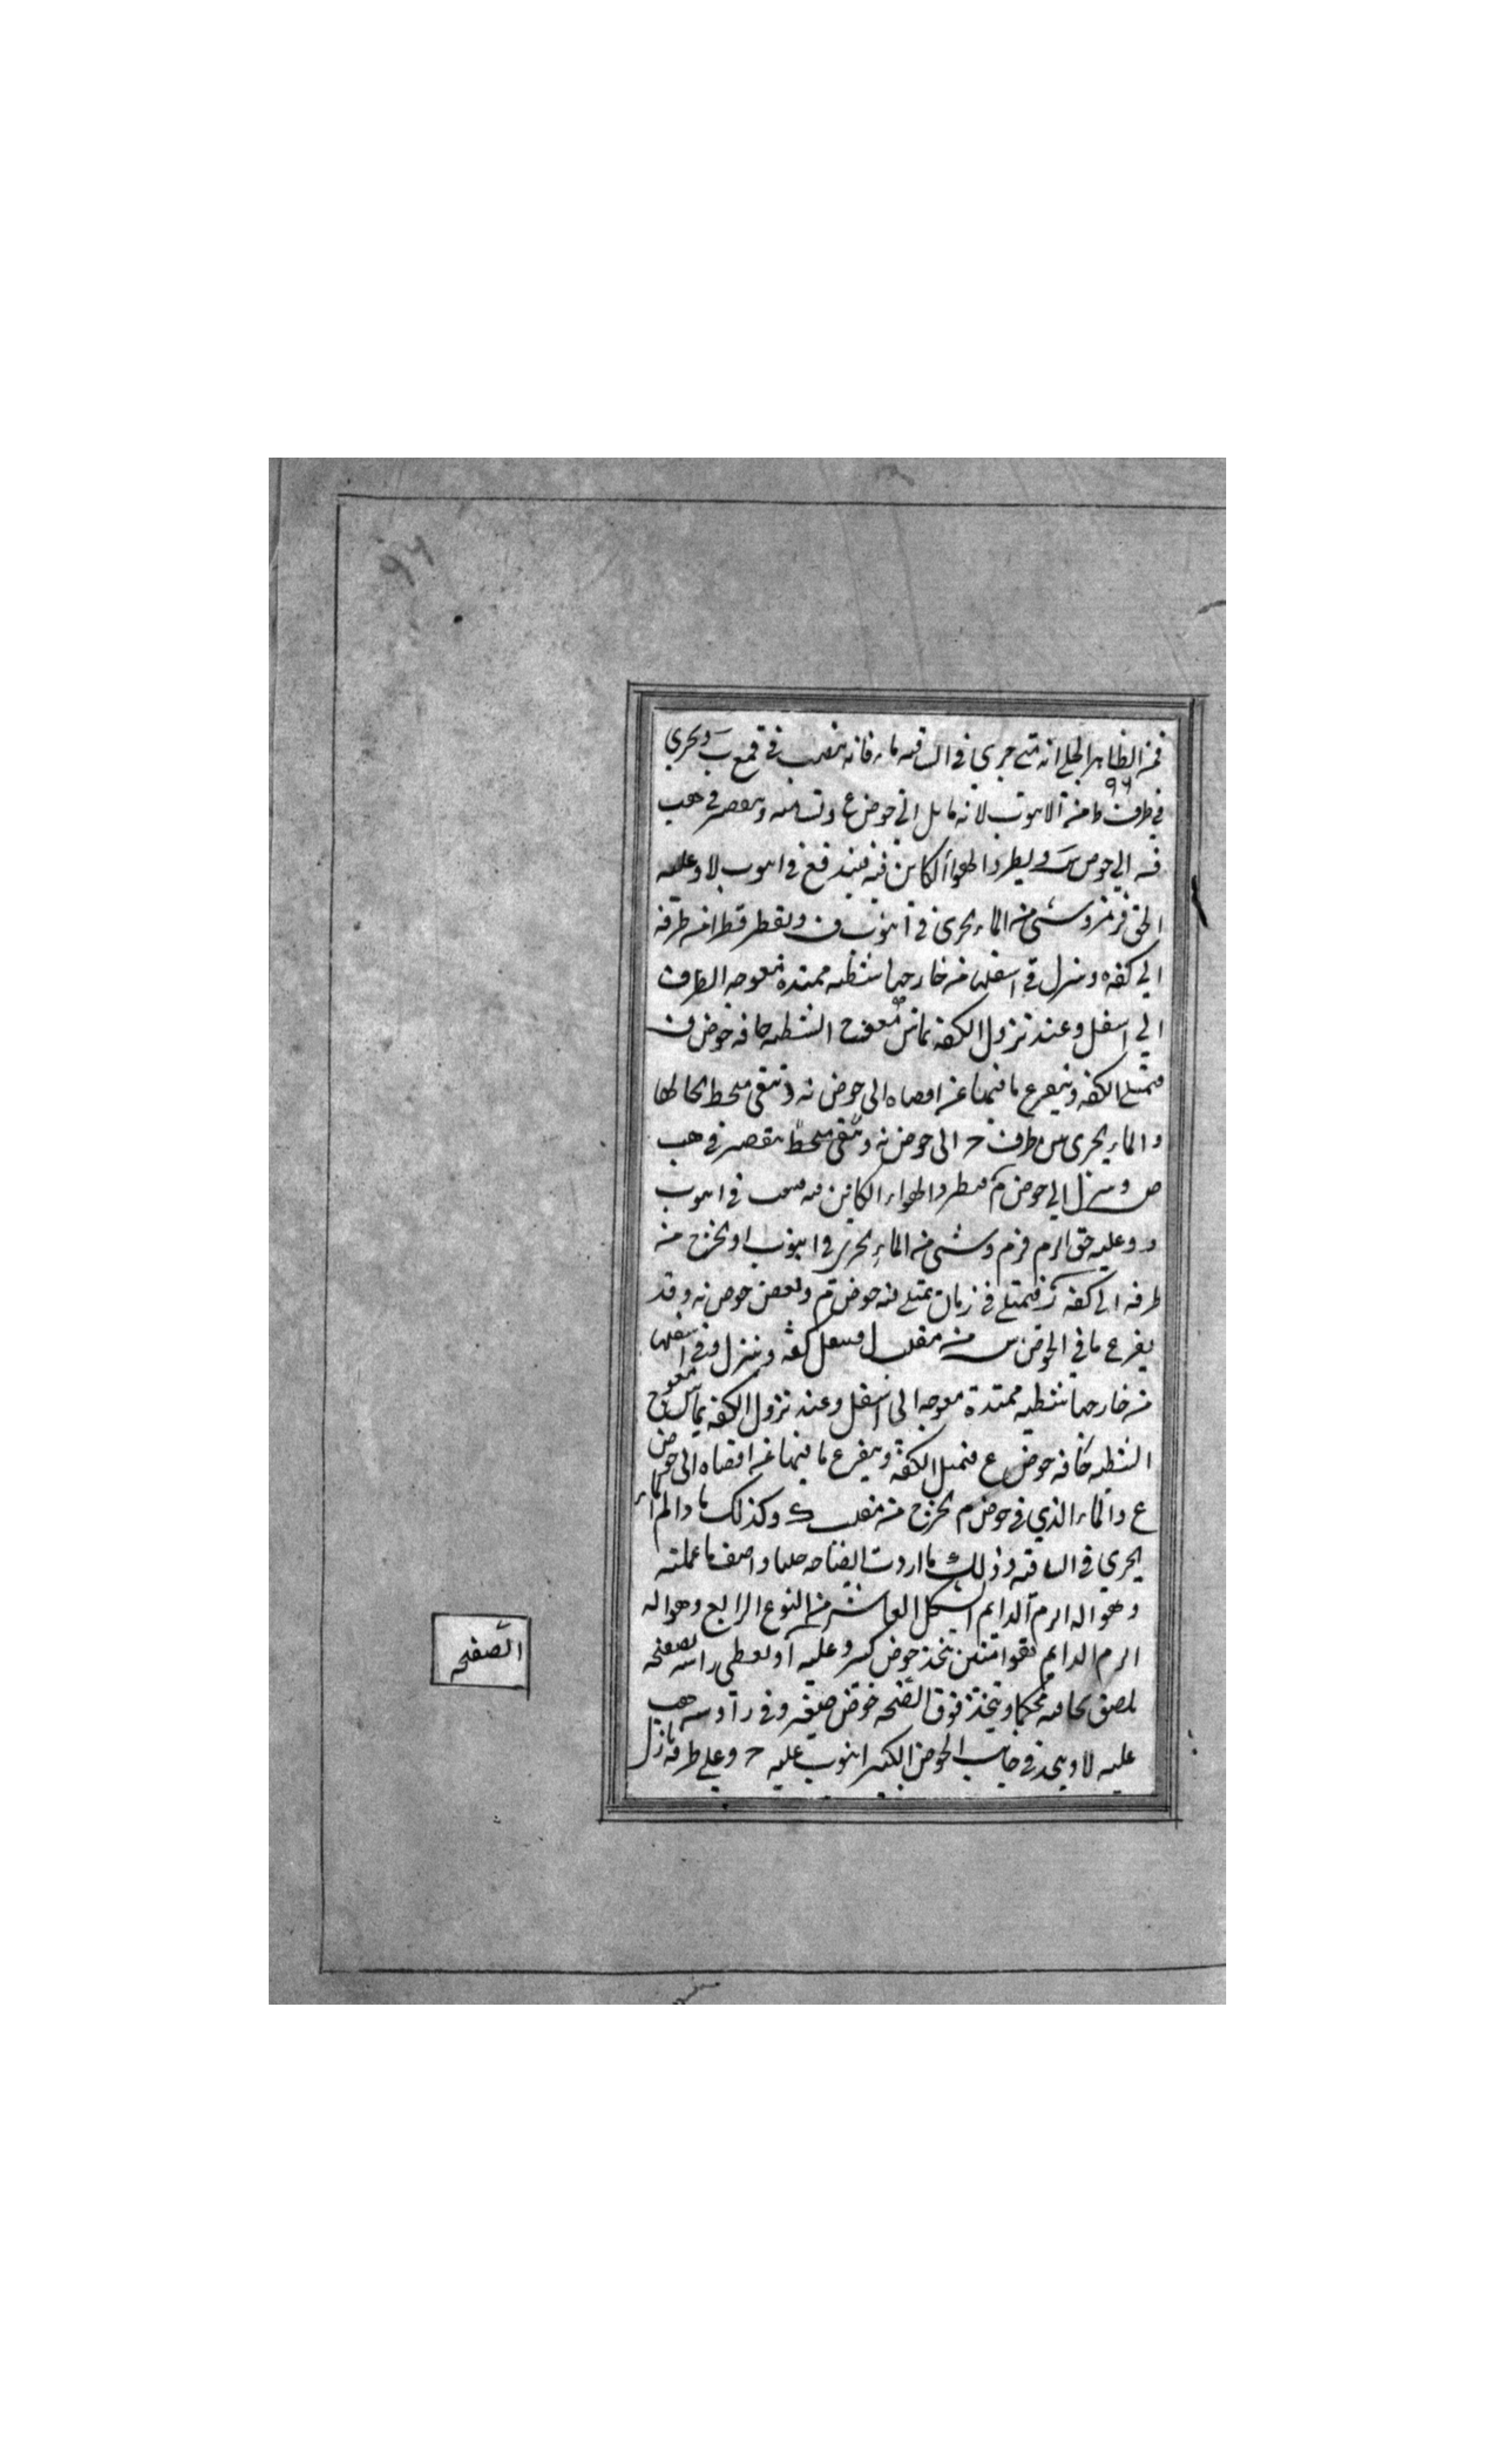 ٩٤
فمن الظاهر الجلي انه متى جرى في الساقيه ماء فانه ينصب في قمع ب ويجري
٩٦
في طرف ط من الانبوب لانه مايل الى حوض ع وتسامته وينصب في ثقب
فيه الى حوض س ويطرد الهواء الكاين فيه فيندفع في انبوب لا وعليه
الحق فيزمر وشئ من الماء يجري في انبوب ف ويقطر قطرا من طرفه
الى كفه وينزل في اسفلها من خارجها شظيه ممتده معوجه الطرف
الى اسفل وعند نزول الكفه يماس معوج الشظيه حافه حوض ف
فتميل الكفه ويتفرغ ما فيها عن اقصاه الى حوض نه وتبقى منحطه بحالها
والماء يجري من طرف ح الى حوض نه وتبقى منحطه ينصب في ثقب
ص وينزل الى حوض م فيطرد الهواء الكاين فيه في انبوب
د وعليه حق الزمر فيزمر وشئ من الماء يجري في انبوب او يخرج من
طرفه الى كفه ز فتمتلى في زمان يمتلى فيه حوض م وبعض حوض نه وقد
يفرغ ما في الحوض س من مقلب ل فيثقل كفه وينزل وفي اسفلها
من خارجها شظيه ممتدة معوجه الى اسفل وعند نزول الكفه يماس معوج
الشظيه حافه حوض ع فتميل الكفه ويتفرغ ما فيها عن اقصاه الى حوض
ع والماء الذي في حوض م يخرج من مقلب ك وكذلك ما دام الماء
يجري في الساقيه وذلك ما اردت ايضاحه جليا واصف ما عملته
وهو اله الزمر الدايم الشكل العاشر من النوع الرابع وهو اله
الزمر الدايم بعوامتين يتخذ حوض كبير وعليه ا ويغطى راسه بصفحه
يلصق بحافته محكما ويتخذ فوق الصفحه حوض صيغه وفي زاويته ثقب
عليه لا ويتخذ في جانب الحوض الكبير انبوب عليه ح وعلى طرفه نازل
الصفحه